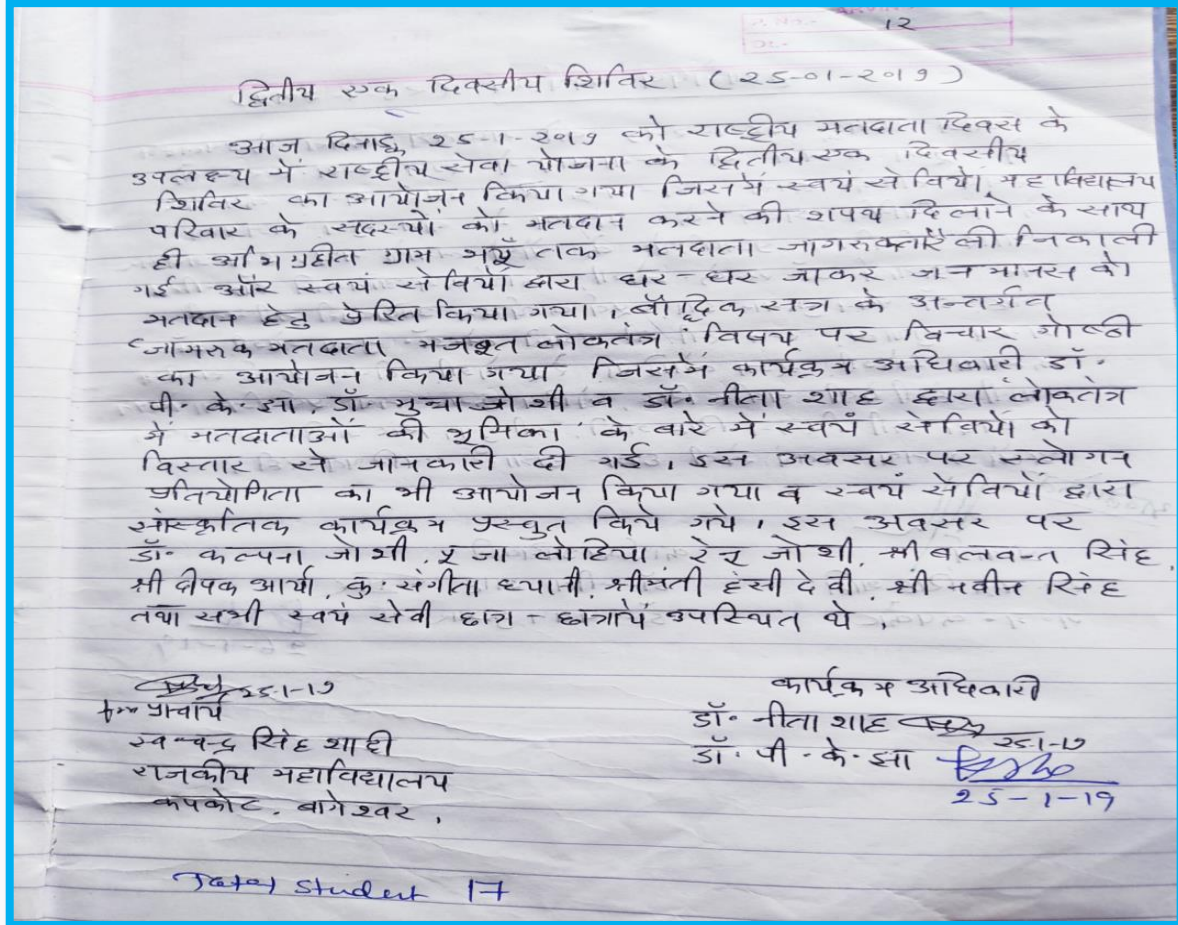 12
द्वितीय एक दिवसीय शिविर (25-01-2019)
आज दिनाङ्क 25-1-2019 को राष्ट्रीय मतदाता दिवस के
उपलक्ष्य में राष्ट्रीय सेवा योजना के द्वितीय एक दिवसीय
शिविर का आयोजन किया गया जिसमें स्वयं सेवियों, महाविद्यालय
परिवार के सदस्यों को मतदान करने की शपथ दिलाने के साथ
ही अभिग्रहीत ग्राम तक मतदाता जागरुकता रैली निकाली
गई और स्वयं सेवियों द्वारा घर-घर जाकर जन मानस को
मतदान हेतु प्रेरित किया गया। बौद्धिक सत्र के अन्तर्गत
'जागरुक मतदाता मजबूत लोकतंत्र' विषय पर विचार गोष्ठी
का आयोजन किया गया जिसमें कार्यक्रम अधिकारी डॉ.
पी. के. झा, डॉ. मुन्ना जोशी व डॉ. नीता शाह द्वारा लोकतंत्र
में मतदाताओं की भूमिका' के बारे में स्वयं सेवियों को
विस्तार से जानकारी दी गई, इस अवसर पर स्लोगन
प्रतियोगिता का भी आयोजन किया गया व स्वयं सेवियों द्वारा
सांस्कृतिक कार्यक्रम प्रस्तुत किये गये, इस अवसर पर
डॉ. कल्पना जोशी, पूजा लोहिया रेनू जोशी, श्री बलवन्त सिंह,
श्री दीपक आर्या, कु. संगीता ध्यानी, श्रीमती हंसी देवी, श्री नवीन सिंह
तथा सभी स्वयं सेवी छात्र - छात्रायें उपस्थित थे,
25-1-19
प्राचार्य
स्व० चन्द्र सिंह शाही
राजकीय महाविद्यालय
कपकोट, बागेश्वर,
कार्यक्रम अधिकारी
डॉ. नीता शाह
25-1-19
डॉ. पी. के. झा
25-1-19
Total student 17